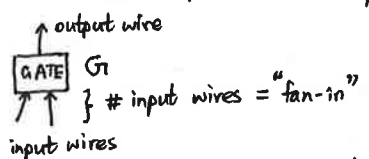 output wire
GATE G
} # input wires = "fan-in"
input wires